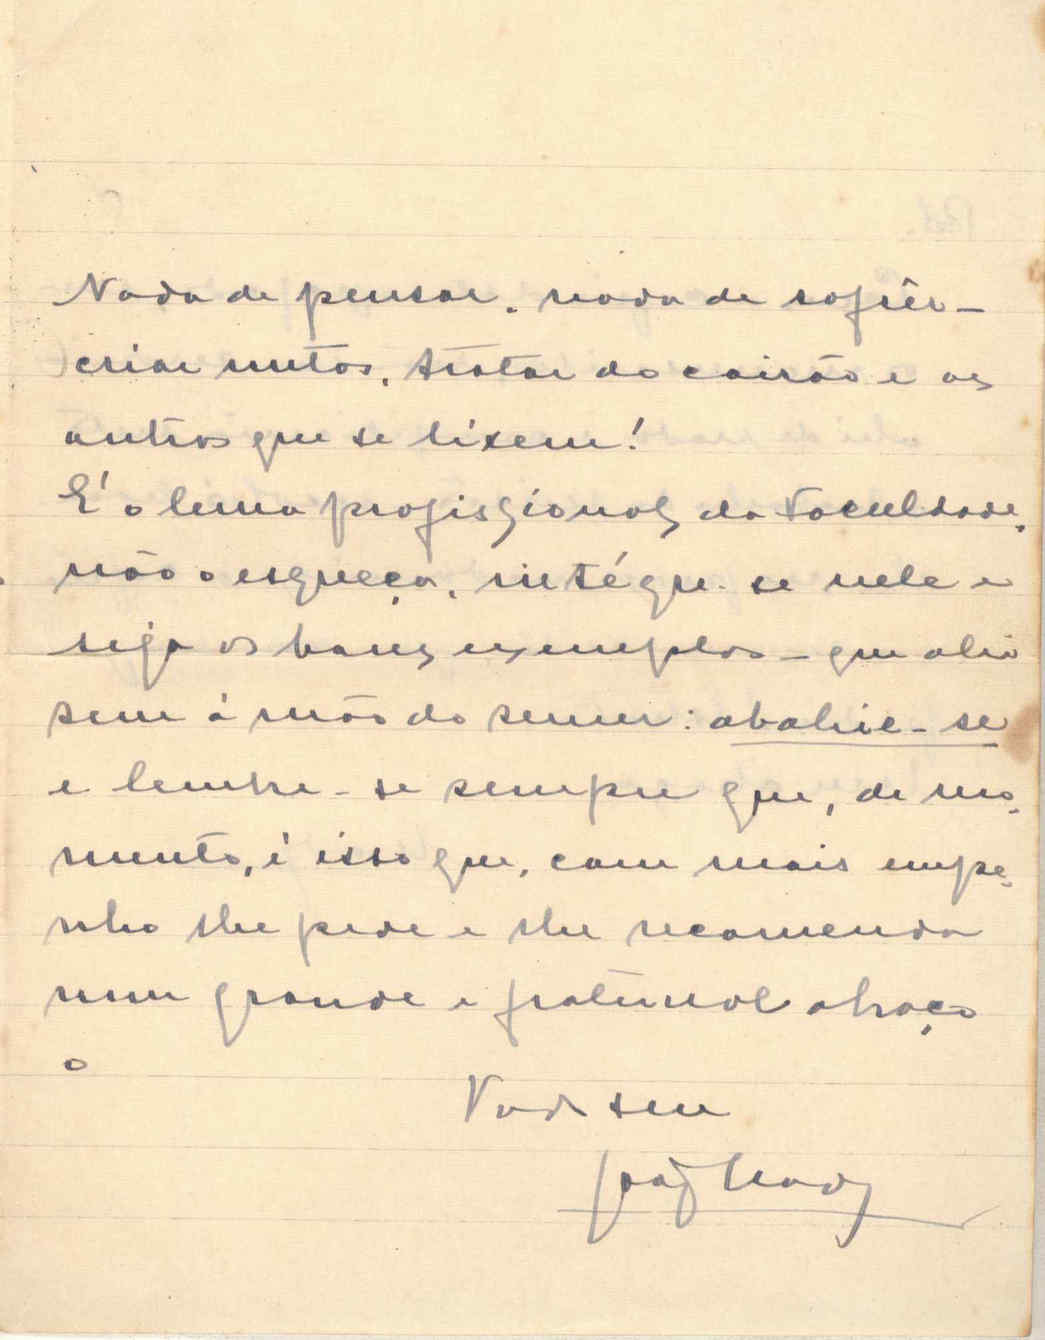 Nada de pensar, nada de sofrêr –
criar netos, tratar do coirão e os
outros que se lixem!
É o lema profissional da Faculdade,
não o esqueça, intégre-se nele e
siga os bons exemplos – que ali
tem á mão de semear: abahie-se
e lembre-se sempre que, de mo-
mento, é isso que, com mais empe-
nho lhe pede e lhe recomenda
num grande e fraternal abraço
o
Todo seu